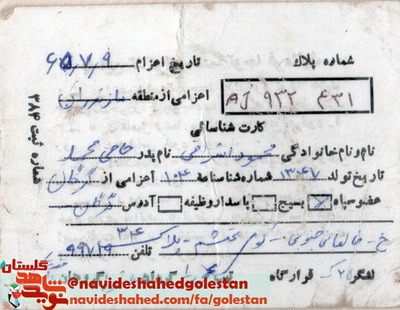 شماره پلاک تاریخ اعزام ۶۵/۷/۹
AJ ۹۳۲ ۴۳۱ اعزامی از منطقه مازندران
کارت شناسائی
نام و نام خانوادگی محمود اشرافی نام پدر حاجی محمد
تاریخ تولد ۱۳۴۷ شماره شناسنامه ۱۰۴ اعزامی از گرگان
عضو سپاه بسیج پاسدار وظیفه آدرس گرگان
خ - طالقانی جنوبی - کوی محتشم - پلاک ۳۴ تلفن
لشگر ۲۵ ک قرارگاه
شماره ثبت ۳۸۴
گلستان
@navideshahedgolestan
navideshahed.com/fa/golestan